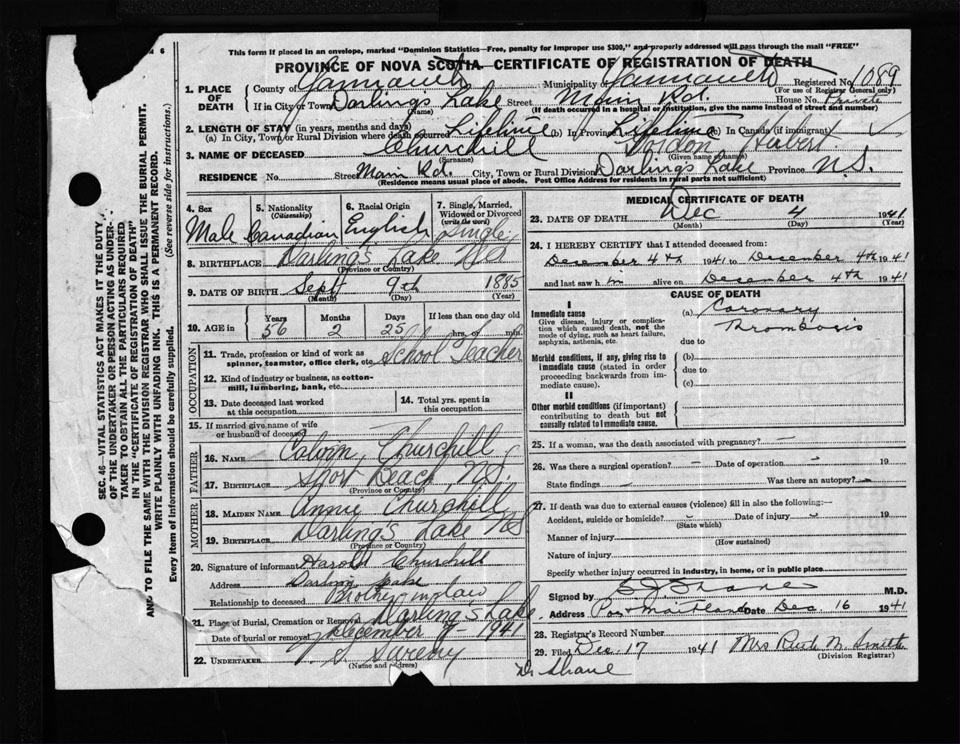 This form if placed in an envelope, marked "Dominion Statistics—Free, penalty for improper use $300," and properly addressed will pass through the mail "FREE"
PROVINCE OF NOVA SCOTIA CERTIFICATE OF REGISTRATION OF DEATH
1. PLACE OF DEATH County of Yarmouth Municipality Yarmouth Registered No. 1089
(For use of Registrar General only)
If in City or Town Darling's Lake Street Main Rd. House No. Private
(Name) (If death occurred in a hospital or institution, give the name instead of street and number)
2. LENGTH OF STAY (in years, months and days)
(a) In City, Town or Rural Division where death occurred Lifetime (b) In Province Lifetime (c) In Canada (if immigrant)
3. NAME OF DECEASED Churchill Hubert
(Surname) (Given name or names)
RESIDENCE No. Street Main Rd. City, Town or Rural Division Darling's Lake Province N.S.
(Residence means usual place of abode. Post Office Address for residents in rural parts not sufficient)
4. Sex Male
5. Nationality (Citizenship) Canadian
6. Racial Origin English
7. Single, Married, Widowed or Divorced (write the word) Single
8. BIRTHPLACE Darling's Lake N.S.
(Province or Country)
9. DATE OF BIRTH Sept 9th 1885
(Month) (Day) (Year)
10. AGE in Years 56 Months 2 Days 25 If less than one day old hrs. or min.
OCCUPATION
11. Trade, profession or kind of work as spinner, teamster, office clerk, etc. School Teacher
12. Kind of industry or business, as cotton-mill, lumbering, bank, etc.
13. Date deceased last worked at this occupation
14. Total yrs. spent in this occupation
15. If married give name of wife or husband of deceased
FATHER
16. NAME Calvin Churchill
17. BIRTHPLACE Short Beach N.S.
(Province or Country)
MOTHER
18. MAIDEN NAME Annie Churchill
19. BIRTHPLACE Darling's Lake N.S.
(Province or Country)
20. Signature of informant Harold Churchill
Address Darling Lake
Relationship to deceased Brother in law
21. Place of Burial, Cremation or Removal Darling's Lake
Date of burial or removal December 7 1941
22. UNDERTAKER S. Sweeny
(Name and address)
MEDICAL CERTIFICATE OF DEATH
23. DATE OF DEATH Dec 4 1941
(Month) (Day)
24. I HEREBY CERTIFY that I attended deceased from:
December 4th 1941 to December 4th 1941
and last saw h im alive on December 4th 1941
CAUSE OF DEATH
I
Immediate cause
Give disease, injury or complication which caused death, not the mode of dying, such as heart failure, asphyxia, asthenia, etc.
(a) Coronary Thrombosis
due to
Morbid conditions, if any, giving rise to immediate cause (stated in order proceeding backwards from immediate cause).
(b)
due to
(c)
II
Other morbid conditions (if important) contributing to death but not causally related to immediate cause.
25. If a woman, was the death associated with pregnancy? —
26. Was there a surgical operation? — Date of operation — 19
State findings — Was there an autopsy? —
27. If death was due to external causes (violence) fill in also the following:—
Accident, suicide or homicide? — Date of injury — 19
(State which)
Manner of injury
(How sustained)
Nature of injury
Specify whether injury occurred in industry, in home, or in public place
Signed by Shane M.D.
Address Port Maitland Date Dec. 16 1941
28. Registrar's Record Number
29. Filed Dec. 17 1941 Mrs Ruth M. Smith
(Division Registrar)
Dr Shane
SEC. 46—VITAL STATISTICS ACT MAKES IT THE DUTY
OF THE UNDERTAKER OR PERSON ACTING AS UNDER-
TAKER TO OBTAIN ALL THE PARTICULARS REQUIRED
IN THE "CERTIFICATE OF REGISTRATION OF DEATH"
AND TO FILE THE SAME WITH THE DIVISION REGISTRAR WHO SHALL ISSUE THE BURIAL PERMIT.
WRITE PLAINLY WITH UNFADING INK. THIS IS A PERMANENT RECORD.
Every item of information should be carefully supplied. (See reverse side for instructions.)